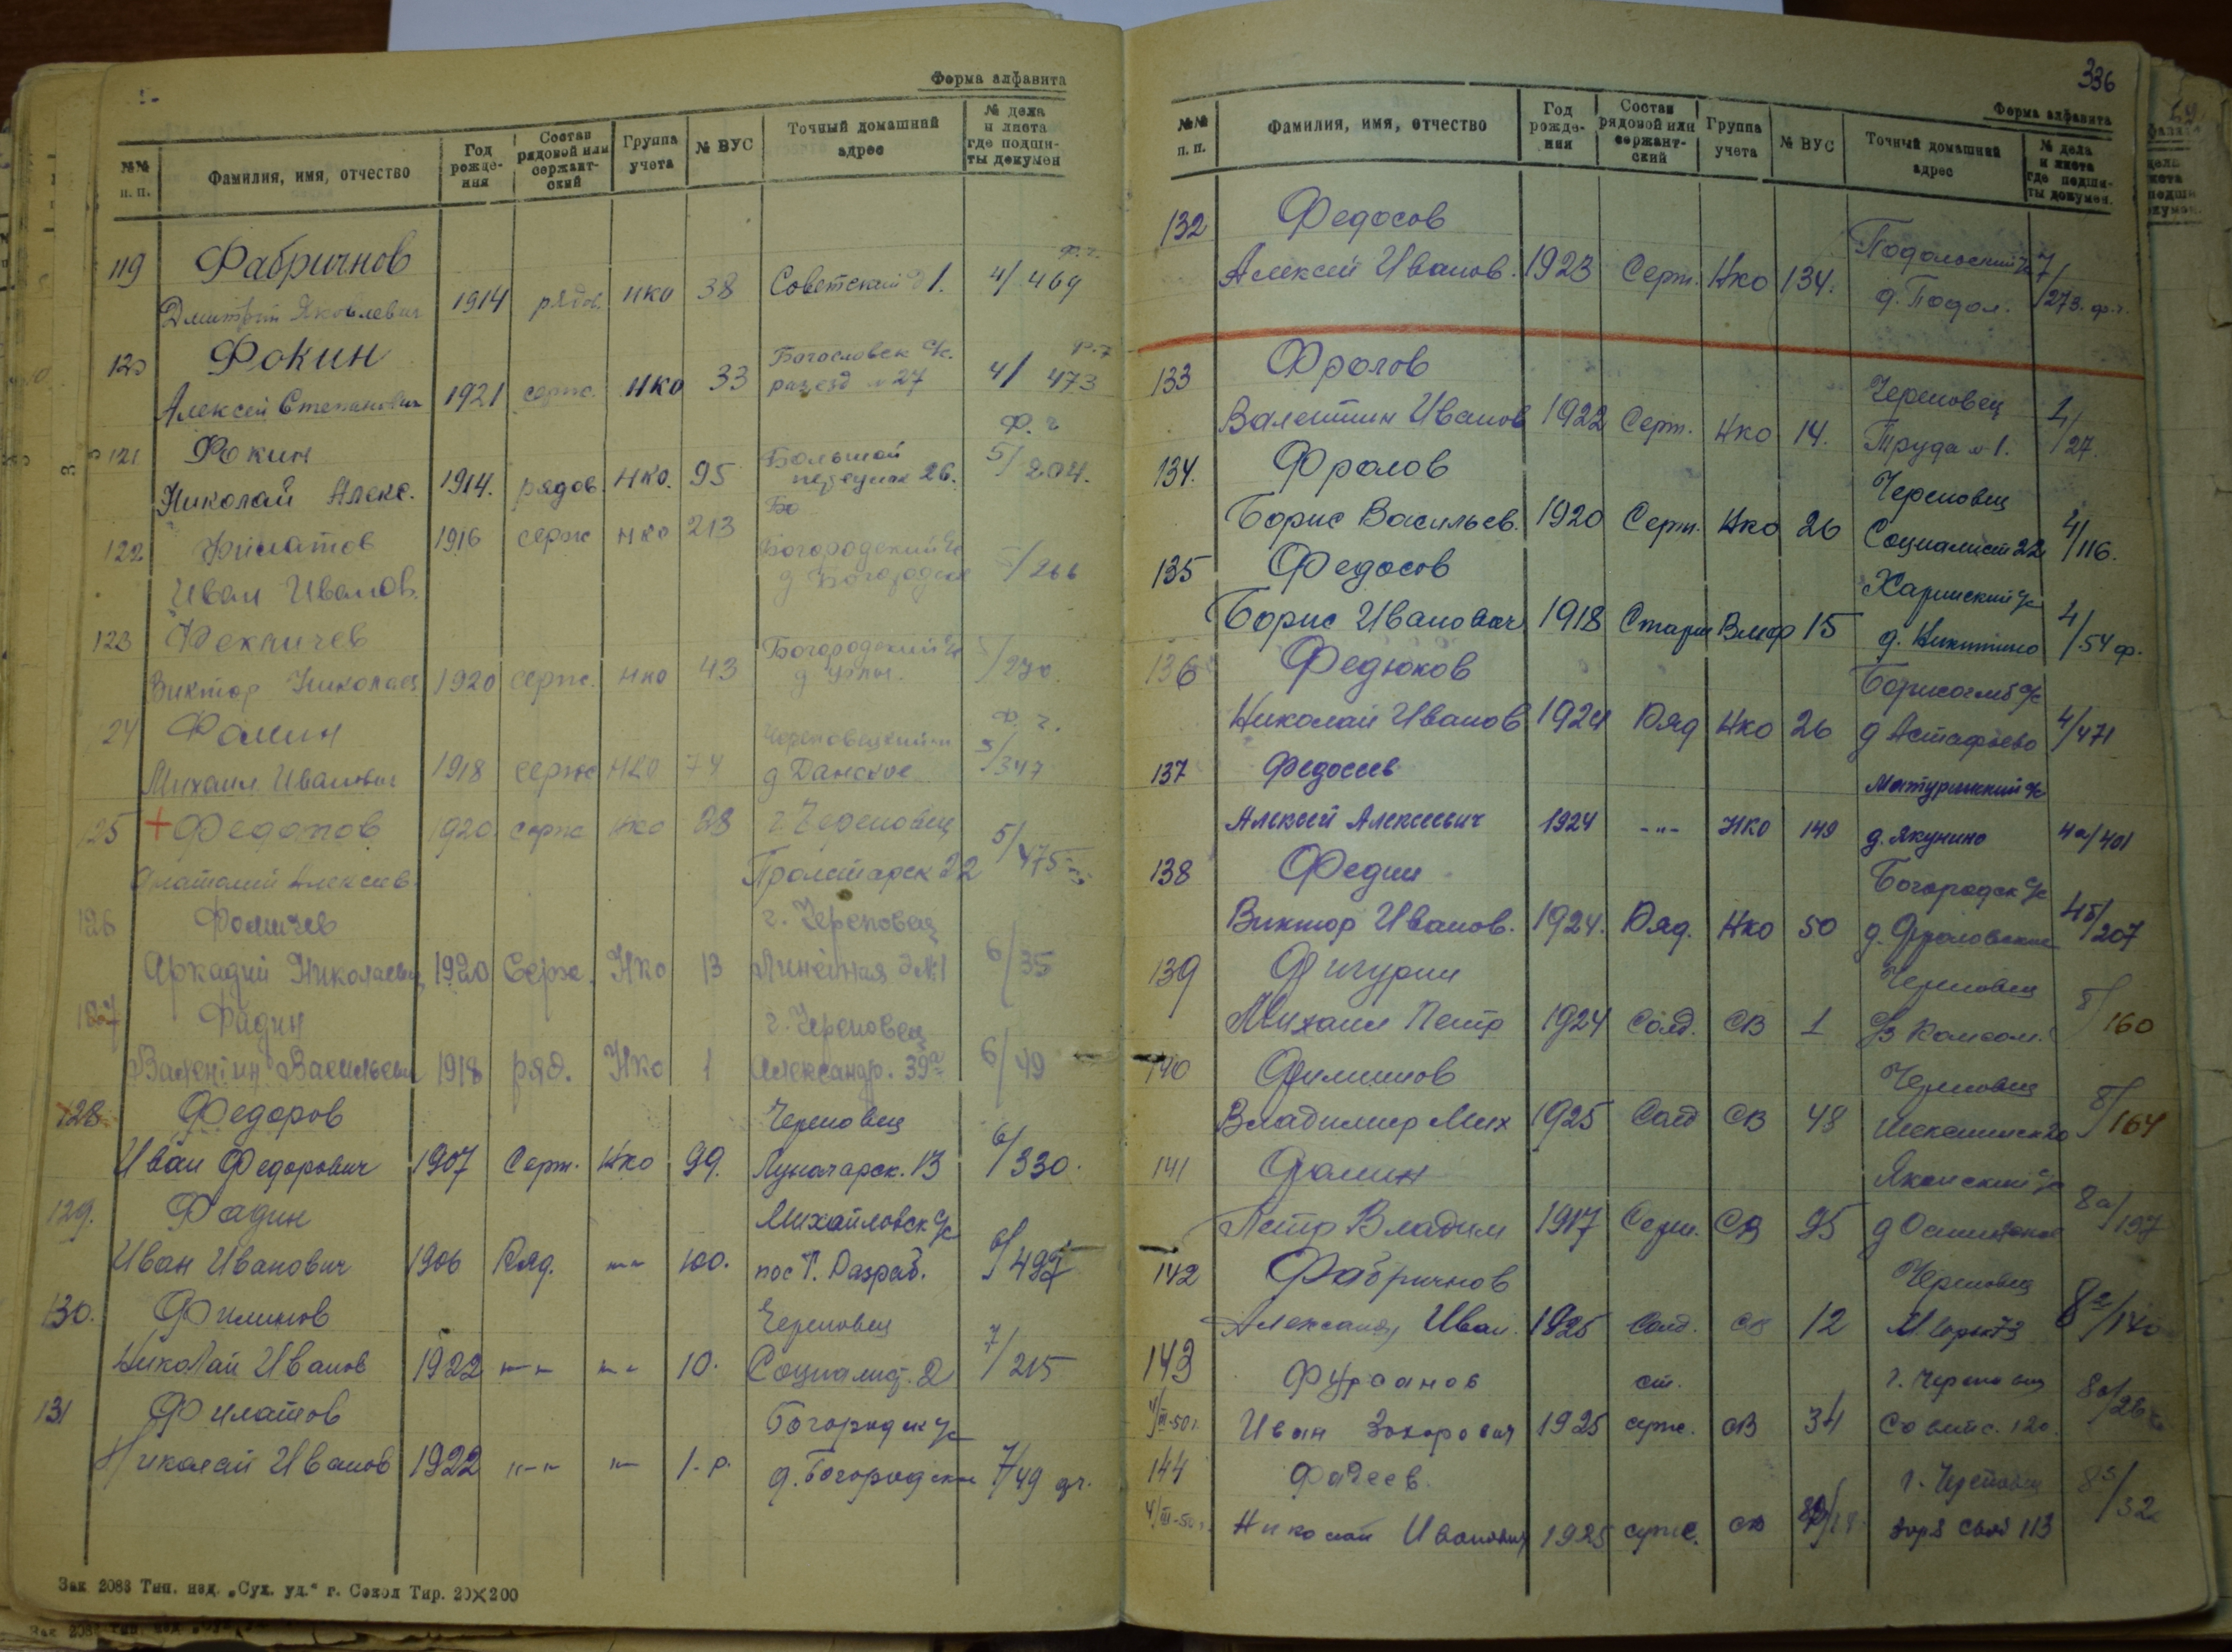 Форма алфавита
№№ п. п.
Фамилия, имя, отчество
Год рожде-ния
Состав рядовой или сержант-ский
Группа учета
№ ВУС
Точный домашний адрес
№ дела и листа где подши-ты докумен
119 Фабричнов ф.г.
Дмитрий Яковлевич 1914 рядов. нко 38 Советский д 1. 4/469
120 Фокин Богословск с/с. ф.г
Алексей Степанович 1921 серж. нко 33 разезд №27 4/473
121 Фокин Большой ф. г
Николай Алекс. 1914. рядов. нко. 95 переулок 26. 5/204.
Бо
122 Филатов 1916 серж нко 213 Богородский с/с
Иван Иванов. д Богородское 5/266
123 Фекличев Богородский с/с
Виктор Николаев 1920 серж. нко 43 д 5/270.
24 Фомин Череповецкий ф. г.
Михаил Иванович 1918 серж нко 74 д Данское 5/347
125 + Федотов 1920 серж нко 28 г Череповец
Анатолий Алексеев. Пролетарск 22 5/475
126 Фомичев г. Череповец
Аркадий Николаевич 1920 Серж. Нко 13 Линейная д №1 6/35
127 Фадин г. Череповец
Валентин Васильевич 1918 ряд. Нко 1 Александр. 39а 6/49
128 Федоров Череповец
Иван Федорович 1907 Серж. Нко 99. Луначарск. 13 6/330.
129. Фадин Михайловск с/с
Иван Иванович 1906 Ряд. -"- 100. пос Т. Разраб. 6/497
130. Филинов Череповец
Николай Иванов 1922 -"- -"- 10. Социалист. 2 7/215
131 Филатов Богородск с/с
Николай Иванов 1922 -"- -"- 1. р. д. Богородское 7/49
Зак 2083 Тип. изд. „Сух. уд.“ г. Сокол Тир. 20×200
336
Форма алфавита
№№ п. п.
Фамилия, имя, отчество
Год рожде-ния
Состав рядовой или сержант-ский
Группа учета
№ ВУС
Точный домашний адрес
№ дела и листа где подши-ты докумен.
132 Федосов Подольский с/с
Алексей Иванов. 1923 Серж. Нко 134. д. Подол. 7/273. ф.г.
133 Фролов Череповец
Валентин Иванов 1922 Серж. Нко 14. Труда №1. 1/27.
134. Фролов Череповец
Борис Васильев. 1920 Серж. Нко 26 Социалист 22 4/116.
135 Федосов Харинский с/с
Борис Иванович 1918 Старш Вмф 15 д. Никитино 4/54 ф.
136 Федюков Борисоглеб с/с
Николай Иванов 1924 Ряд Нко 26 д Астафьево 4/471
137 Федосеев Матуринский с/с
Алексей Алексеевич 1924 -"- НКО 149 д. Якунино 4а/401
138 Федин Богородск с/с
Виктор Иванов. 1924. Ряд. Нко 50 д. Фроловское 4б/207
139 Фигурин Череповец
Михаил Петр 1924 Солд. СВ 1 Комсом. 8/160
140 Филиппов Череповец
Владимир Мих 1925 Солд СВ 48 8/164
141 Фомин
Петр Владим 1917 Серж. СВ 95 8а/197
142 Фабричнов Череповец
Александр Иван. 1925 Солд. св 12 М. Горьк 73
143 Фурсанов ст. г. Череповец
4/III-50г. Иван Захарович 1925 серж. СВ 34 Советс. 120.
144 Фадеев. г. Череповец
4/III-50г. Николай Иванович 1925 серж. св 113